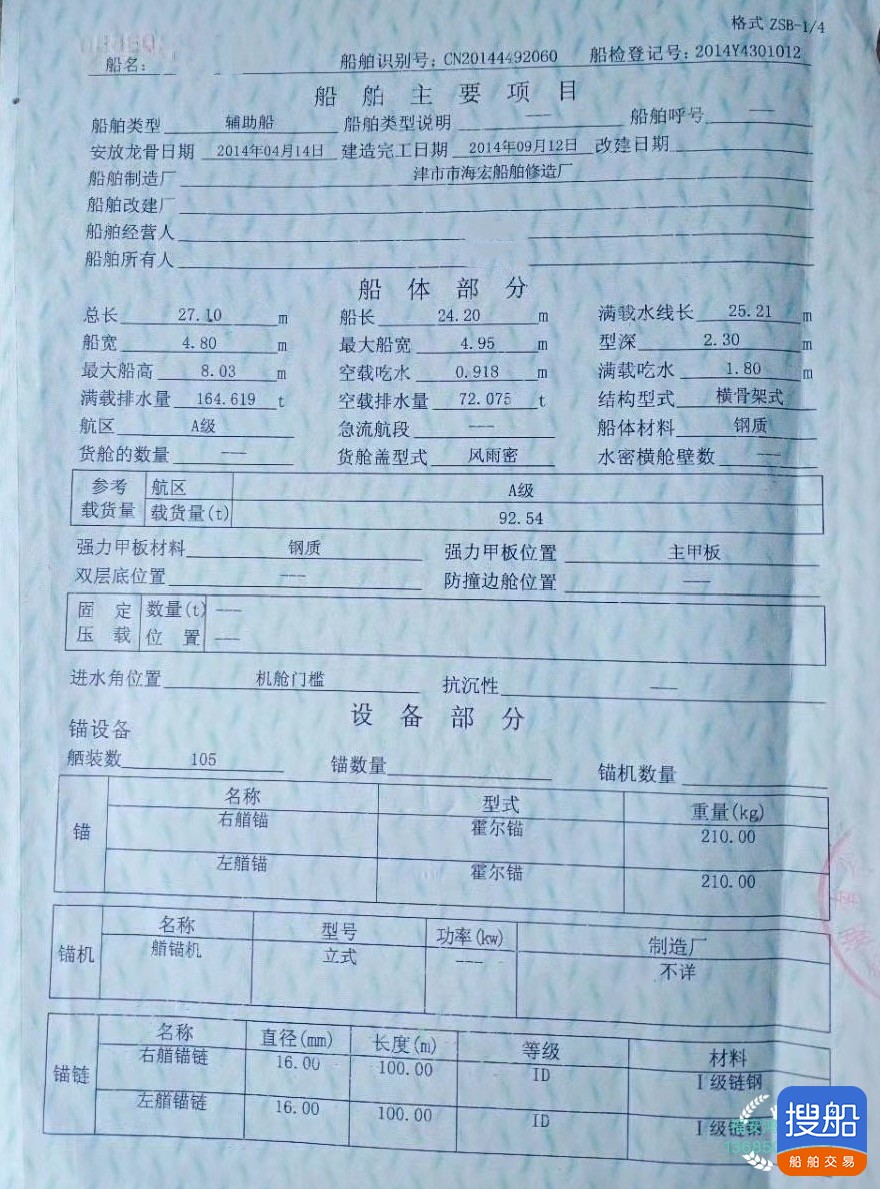 格式 ZSB-1/4
船名: 船舶识别号: CN20144492060 船检登记号: 2014Y4301012
船舶主要项目
船舶类型 辅助船 船舶类型说明 --- 船舶呼号 ---
安放龙骨日期 2014年04月14日 建造完工日期 2014年09月12日 改建日期
船舶制造厂 津市市海宏船舶修造厂
船舶改建厂
船舶经营人
船舶所有人
船体部分
总长 27.10 m 船长 24.20 m 满载水线长 25.21 m
船宽 4.80 m 最大船宽 4.95 m 型深 2.30 m
最大船高 8.03 m 空载吃水 0.918 m 满载吃水 1.80 m
满载排水量 164.619 t 空载排水量 72.075 t 结构型式 横骨架式
航区 A级 急流航段 --- 船体材料 钢质
货舱的数量 --- 货舱盖型式 风雨密 水密横舱壁数 ---
参考 航区 A级
载货量 载货量(t) 92.54
强力甲板材料 钢质 强力甲板位置 主甲板
双层底位置 --- 防撞边舱位置 ---
固定 数量(t) ---
压载 位置 ---
进水角位置 机舱门槛 抗沉性 ---
设备部分
锚设备
舾装数 105 锚数量 锚机数量
锚 名称 型式 重量(kg)
右艏锚 霍尔锚 210.00
左艏锚 霍尔锚 210.00
锚机 名称 型号 功率(kw) 制造厂
艏锚机 立式 --- 不详
锚链 名称 直径(mm) 长度(m) 等级 材料
右艏锚链 16.00 100.00 ID I级链钢
左艏锚链 16.00 100.00 ID I级链钢
搜船
船舶交易